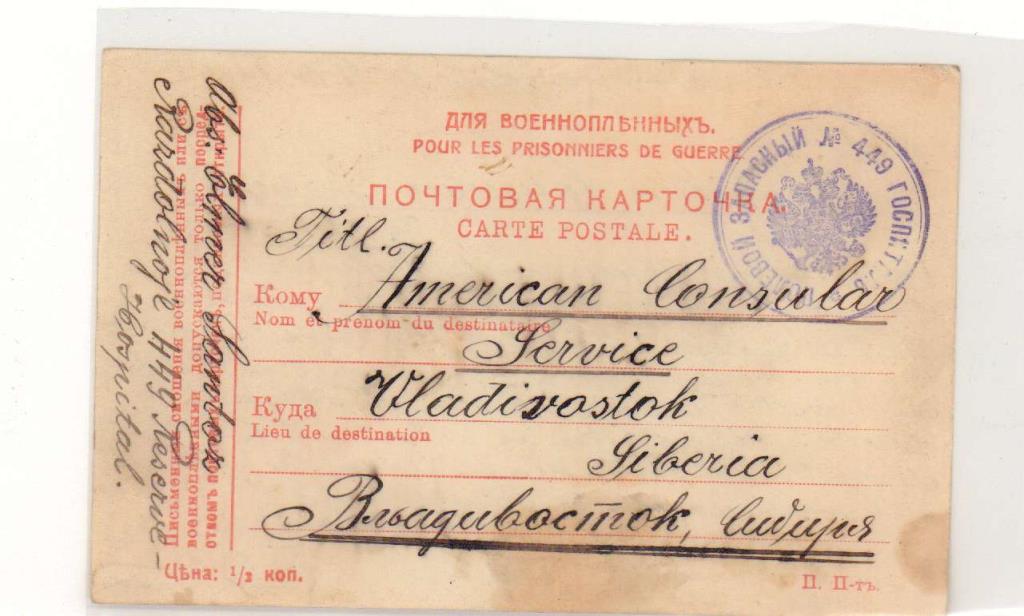 ДЛЯ ВОЕННОПЛѢННЫХЪ.
POUR LES PRISONNIERS DE GUERRE
ПОЧТОВАЯ КАРТОЧКА.
CARTE POSTALE.
Titl.
Кому American Consular
Nom et prénom du destinataire
Service
Куда Vladivostok
Lieu de destination
Siberia
Вльадивосток, Сибирія
Цѣна: 1/2 коп.
П. П-тъ.
ПОЛЕВОЙ ЗАПАСНЫЙ № 449 ГОСПИТАЛЬ
Abs. Elmer
449 Reserve-
Hospital.
Письменныя сношенія военноплѣнныхъ или съ
военноплѣнными допускаются только посред-
ствомъ